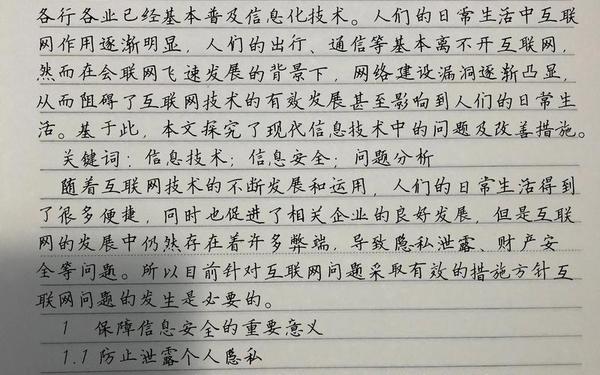 各行各业已经基本普及信息化技术。人们的日常生活中互联
网作用逐渐明显，人们的出行、通信等基本离不开互联网，
然而在会联网飞速发展的背景下，网络建设漏洞逐渐凸显，
从而阻碍了互联网技术的有效发展甚至影响到人们的日常生
活。基于此，本文探究了现代信息技术中的问题及改善措施。
关键词：信息技术；信息安全；问题分析
随着互联网技术的不断发展和运用，人们的日常生活得到
了很多便捷，同时也促进了相关企业的良好发展，但是互联
网的发展中仍然存在着许多弊端，导致隐私泄露、财产安
全等问题。所以目前针对互联网问题采取有效的措施方针互
联网问题的发生是必要的。
1 保障信息安全的重要意义
1.1 防止泄露个人隐私